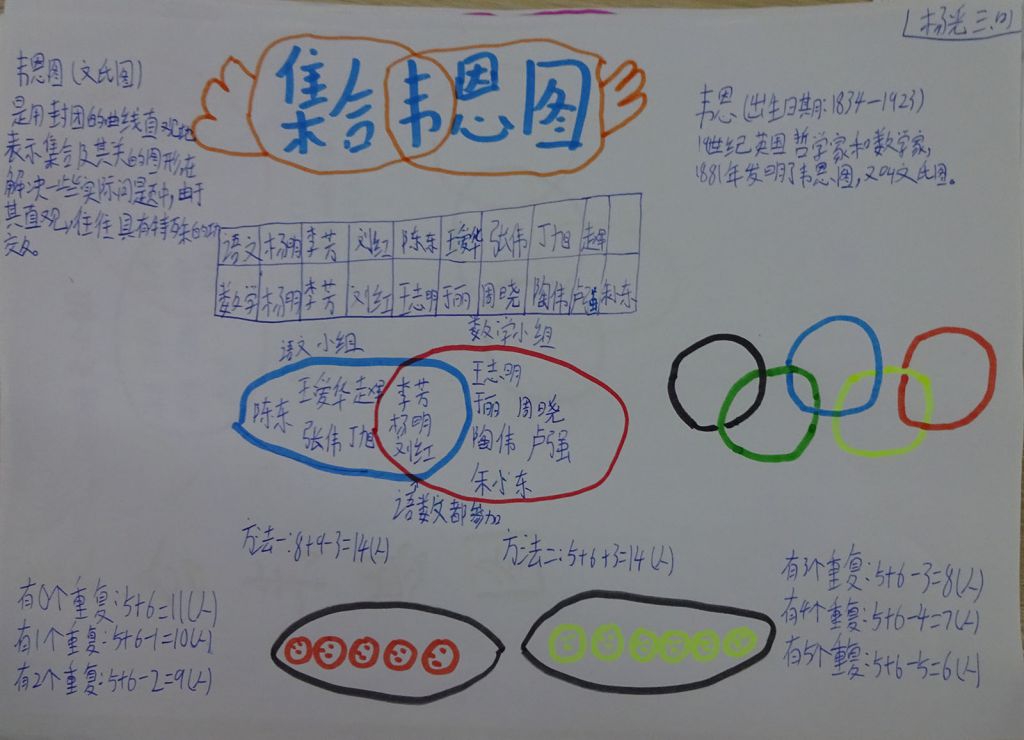 杨光 三.(1)
集合韦恩图
韦恩图(文氏图)
是用封闭的曲线直观地
表示集合及其关的图形,在
解决一些实际问题中,由于
其直观,往往具有特殊的功
韦恩(出生日期:1834—1923)
19世纪英国哲学家和数学家,
1881年发明了韦恩图,又叫文氏图。
语文 杨明 李芳 刘红 陈东 王爱华 张伟 丁旭 赵军
数学 杨明 李芳 刘红 王志明 于丽 周晓 陶伟 卢强 朱小东
语文小组
数学小组
陈东 王爱华 赵军 李芳 王志明
杨明 于丽 周晓
张伟 丁旭 刘红 陶伟 卢强
朱小东
语数文都参加
方法一:8+9-3=14(人)
方法二:5+6+3=14(人)
有0个重复:5+6=11(人)
有1个重复:5+6-1=10(人)
有2个重复:5+6-2=9(人)
有3个重复:5+6-3=8(人)
有4个重复:5+6-4=7(人)
有5个重复:5+6-5=6(人)